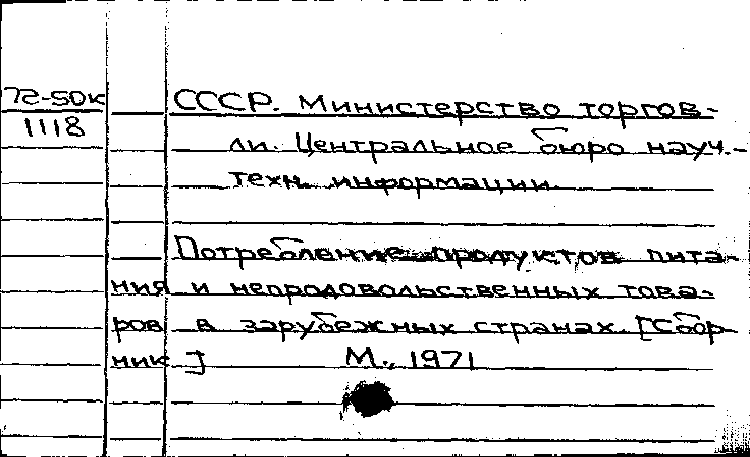 72-50к
1118
СССР. Министерство торгов-
ли. Центральное бюро науч.-
техн. информации.
Потребление продуктов пита-
ния и непродовольственных това-
ров в зарубежных странах. [Сбор-
ник] М., 1971